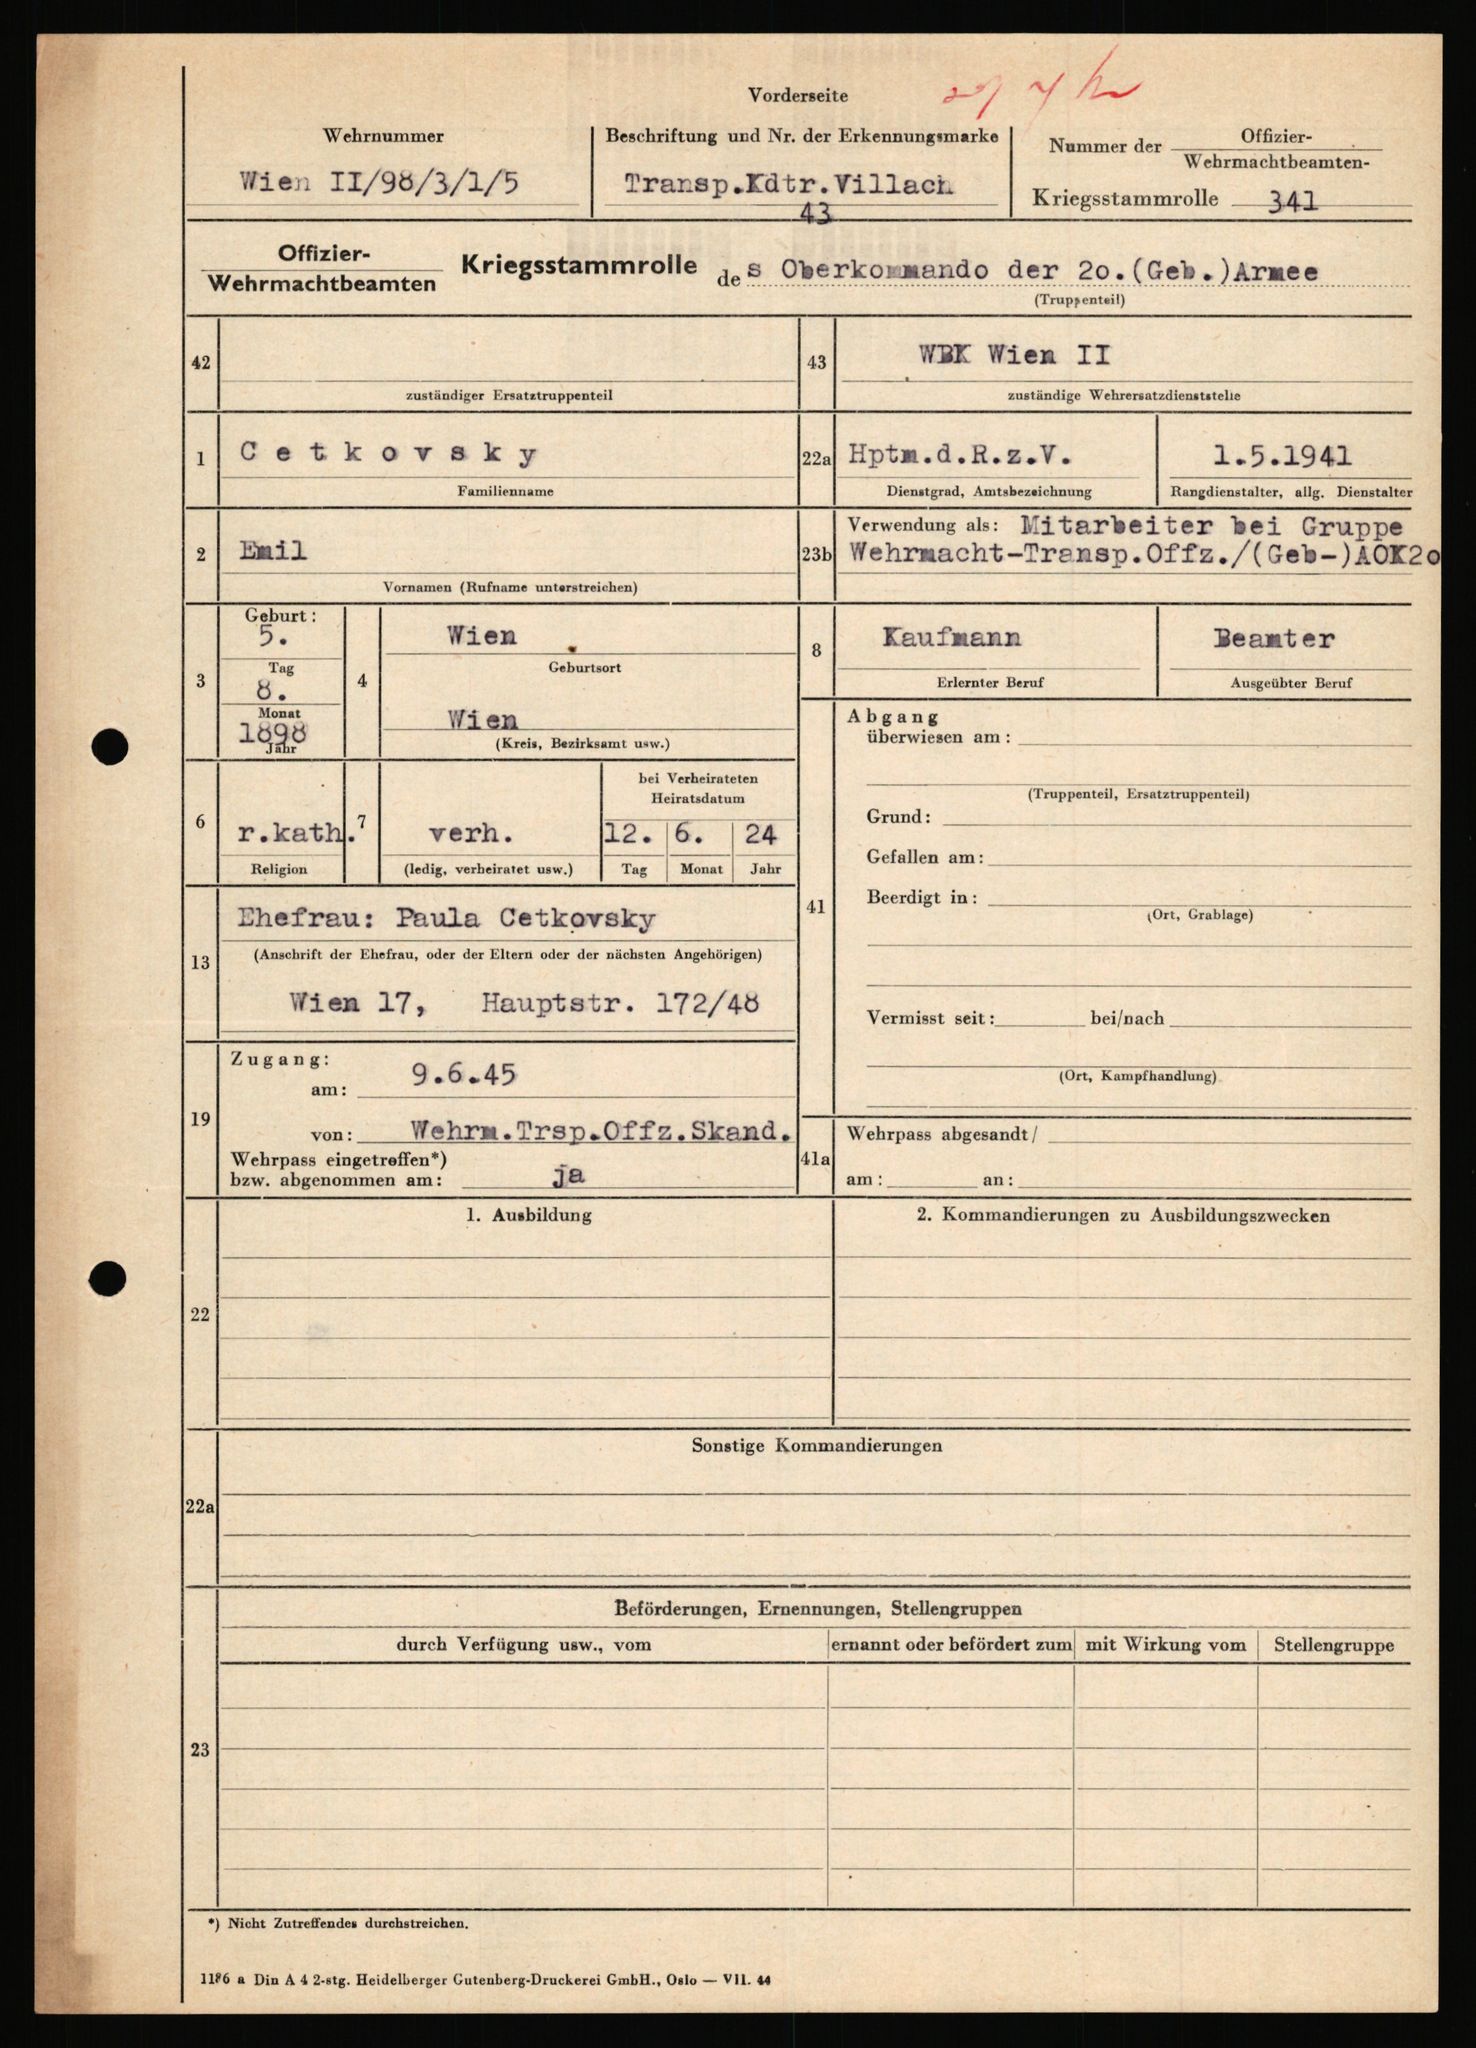 Vorderseite
Wehrnummer
Wien II/98/3/1/5
Beschriftung und Nr. der Erkennungsmarke
Transp.Kdtr.Villach
43
Nummer der Offizier-
Wehrmachtbeamten-
Kriegsstammrolle 341
Offizier-
Wehrmachtbeamten
Kriegsstammrolle des Oberkommando der 2o.(Geb.)Armee
(Truppenteil)
42
zuständiger Ersatztruppenteil
43
WBK Wien II
zuständige Wehrersatzdienststelle
1
Cetkovsky
Familienname
22a
Hptm.d.R.z.V.
Dienstgrad, Amtsbezeichnung
1.5.1941
Rangdienstalter, allg. Dienstalter
2
Emil
Vornamen (Rufname unterstreichen)
23b
Verwendung als: Mitarbeiter bei Gruppe
Wehrmacht-Transp.Offz./(Geb-)AOK2o
3
Geburt:
5.
Tag
8.
Monat
1898
Jahr
4
Wien
Geburtsort
Wien
(Kreis, Bezirksamt usw.)
8
Kaufmann
Erlernter Beruf
Beamter
Ausgeübter Beruf
6
r.kath.
Religion
7
verh.
(ledig, verheiratet usw.)
bei Verheirateten
Heiratsdatum
12. 6. 24
Tag Monat Jahr
13
Ehefrau: Paula Cetkovsky
(Anschrift der Ehefrau, oder der Eltern oder der nächsten Angehörigen)
Wien 17, Hauptstr. 172/48
41
Abgang
überwiesen am:
(Truppenteil, Ersatztruppenteil)
Grund:
Gefallen am:
Beerdigt in:
(Ort, Grablage)
Vermisst seit: bei/nach
(Ort, Kampfhandlung)
19
Zugang:
am: 9.6.45
von: Wehrm.Trsp.Offz.Skand.
Wehrpass eingetroffen*)
bzw. abgenommen am: ja
41a
Wehrpass abgesandt/
am: an:
22
1. Ausbildung
2. Kommandierungen zu Ausbildungszwecken
22a
Sonstige Kommandierungen
23
Beförderungen, Ernennungen, Stellengruppen
durch Verfügung usw., vom
ernannt oder befördert zum
mit Wirkung vom
Stellengruppe
*) Nicht Zutreffendes durchstreichen.
1186 a Din A 4 2-stg. Heidelberger Gutenberg-Druckerei GmbH., Oslo — VII. 44